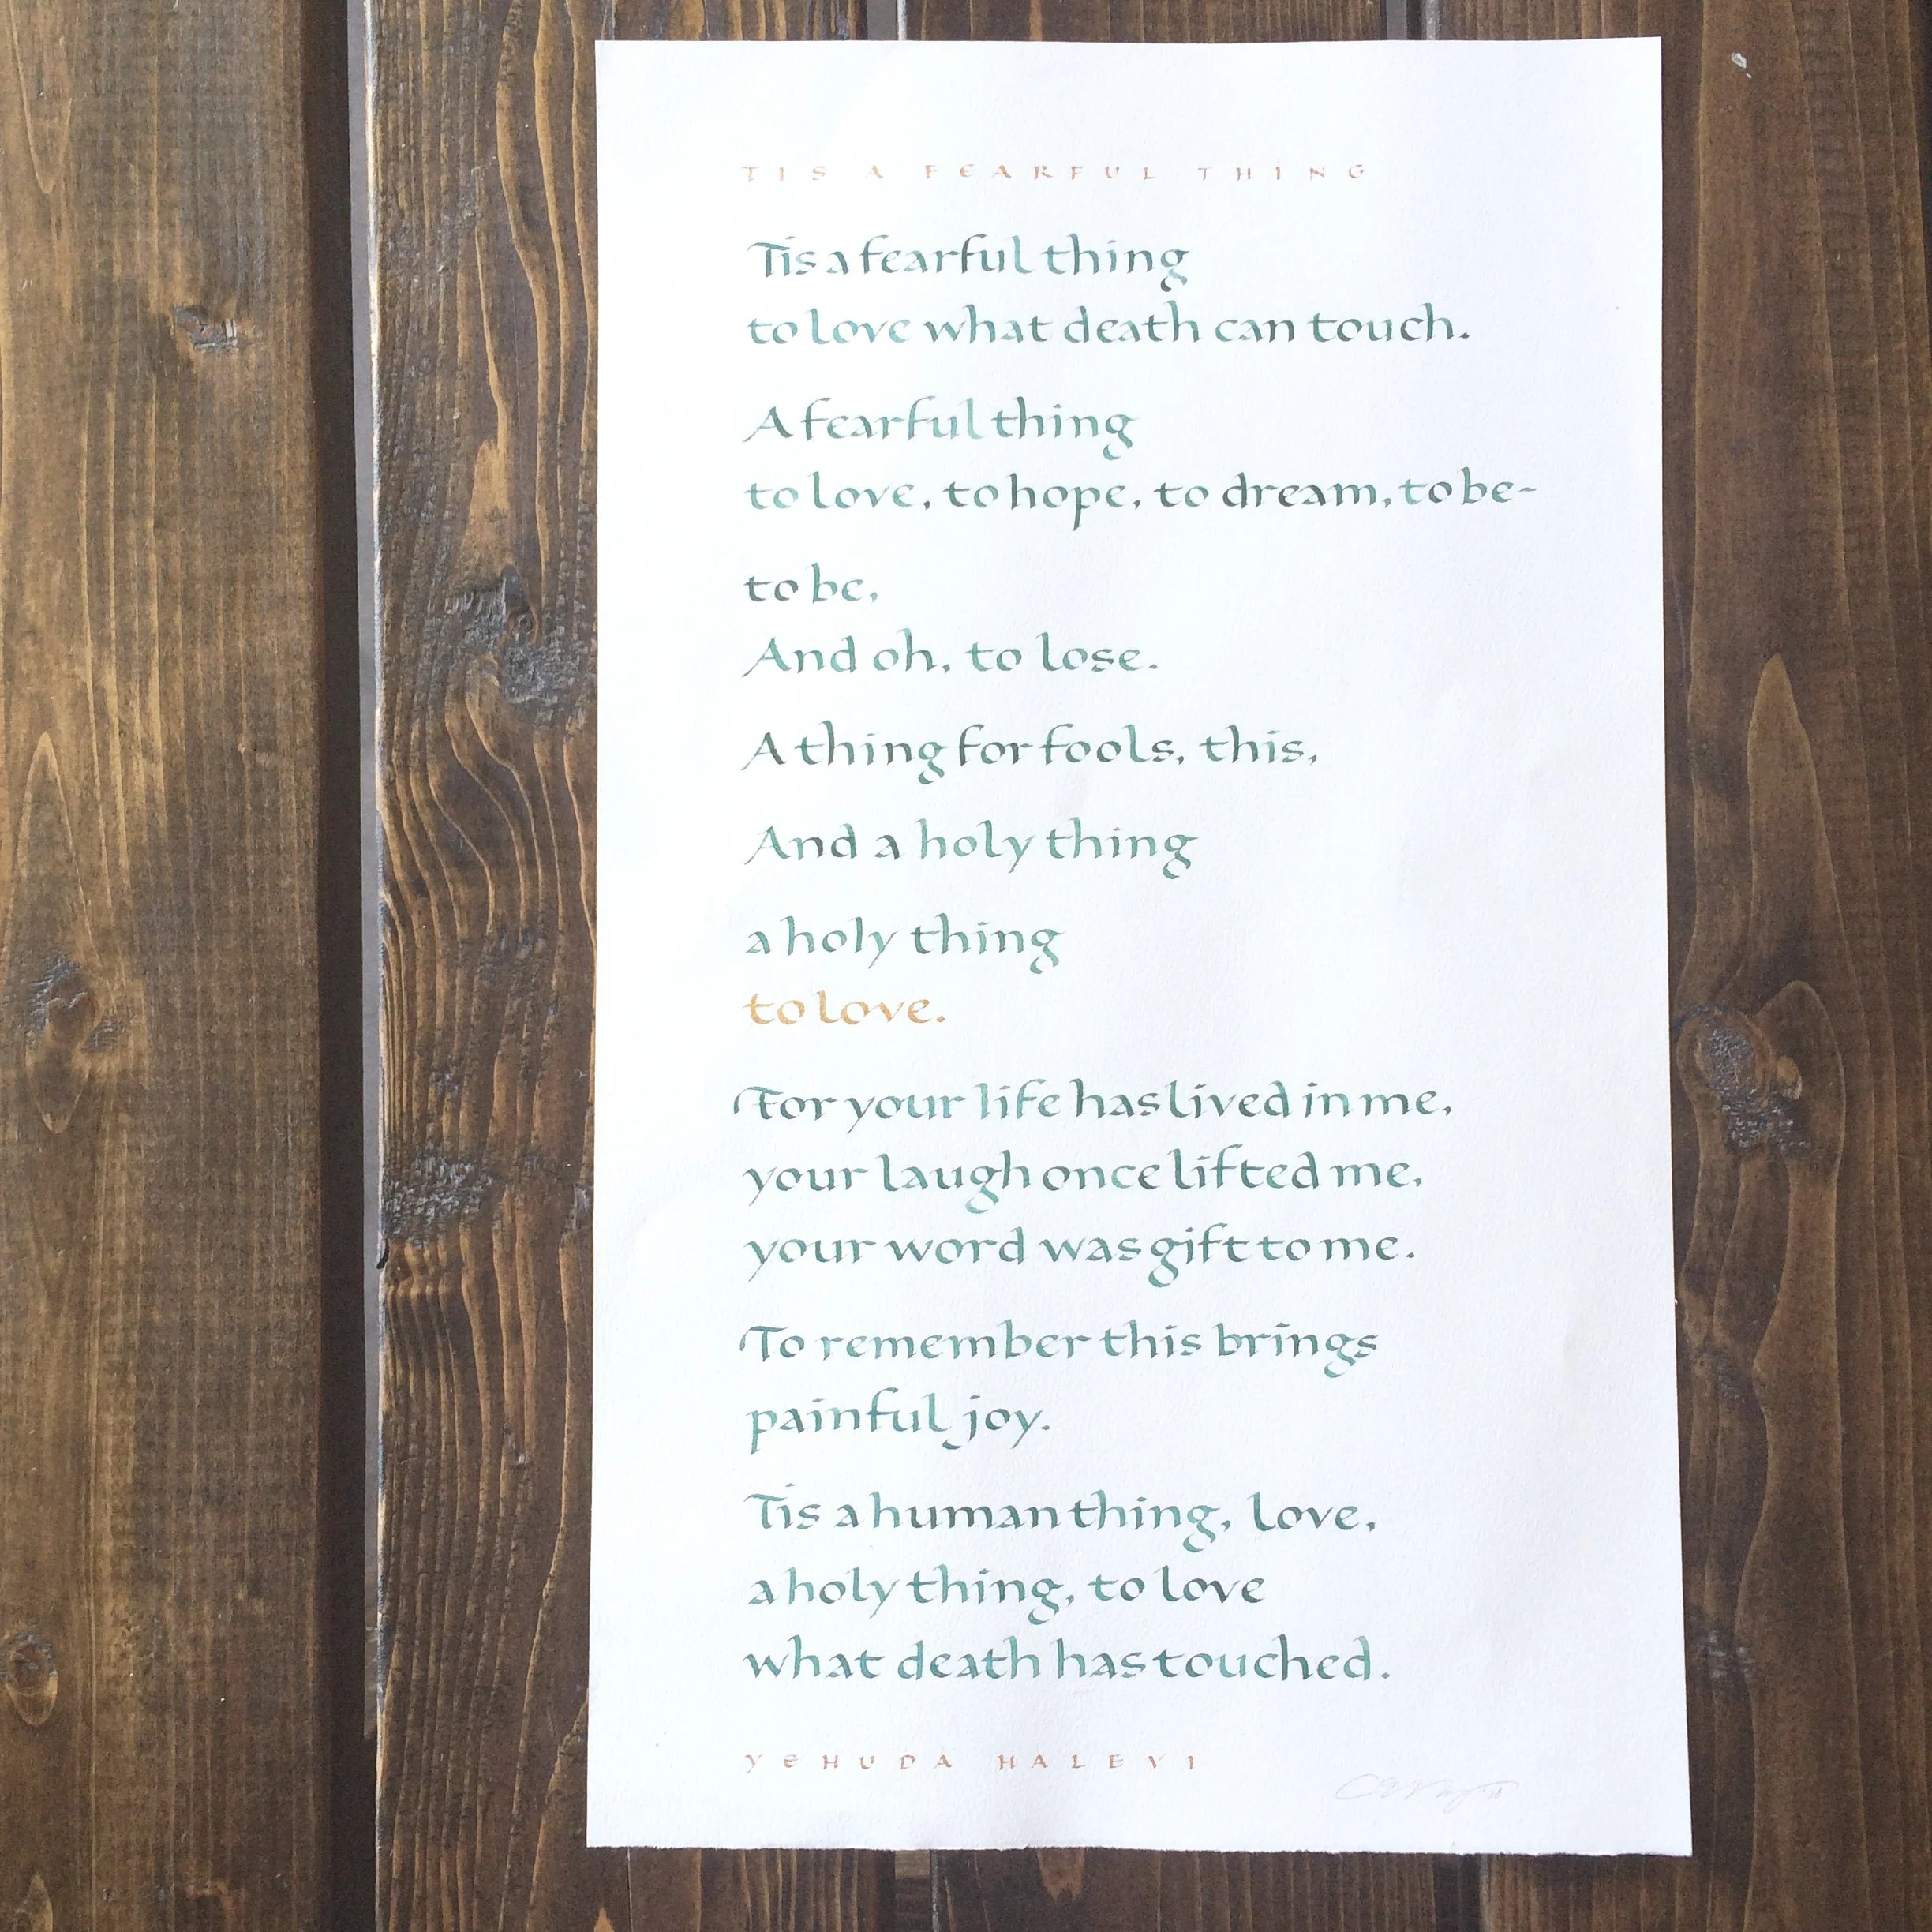 TIS A FEARFUL THING
Tis a fearful thing
to love what death can touch.
A fearful thing
to love, to hope, to dream, to be-
to be,
And oh, to lose.
A thing for fools, this,
And a holy thing
a holy thing
to love.
For your life has lived in me,
your laugh once lifted me,
your word was gift to me.
To remember this brings
painful joy.
Tis a human thing, love,
a holy thing, to love
what death has touched.
YEHUDA HALEVI